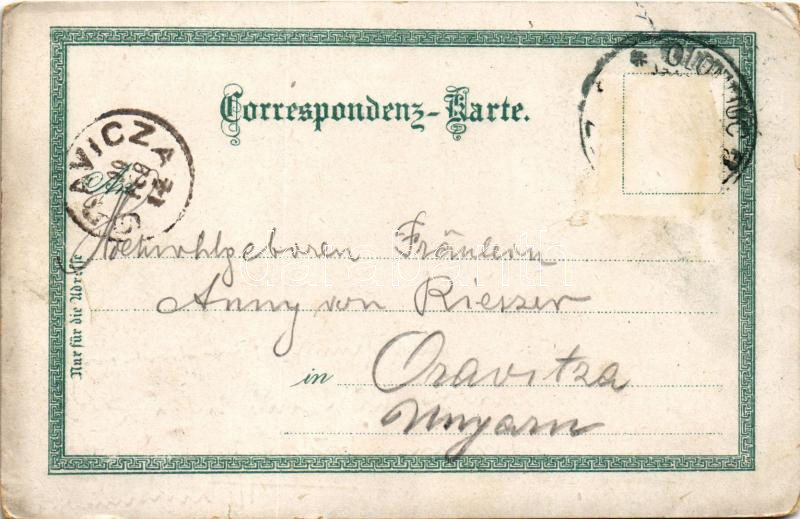 Correspondenz-Karte.
An
Hochwohlgeboren Fräulein
Anny von
in Oravitza
Ungarn
Nur für die Adresse